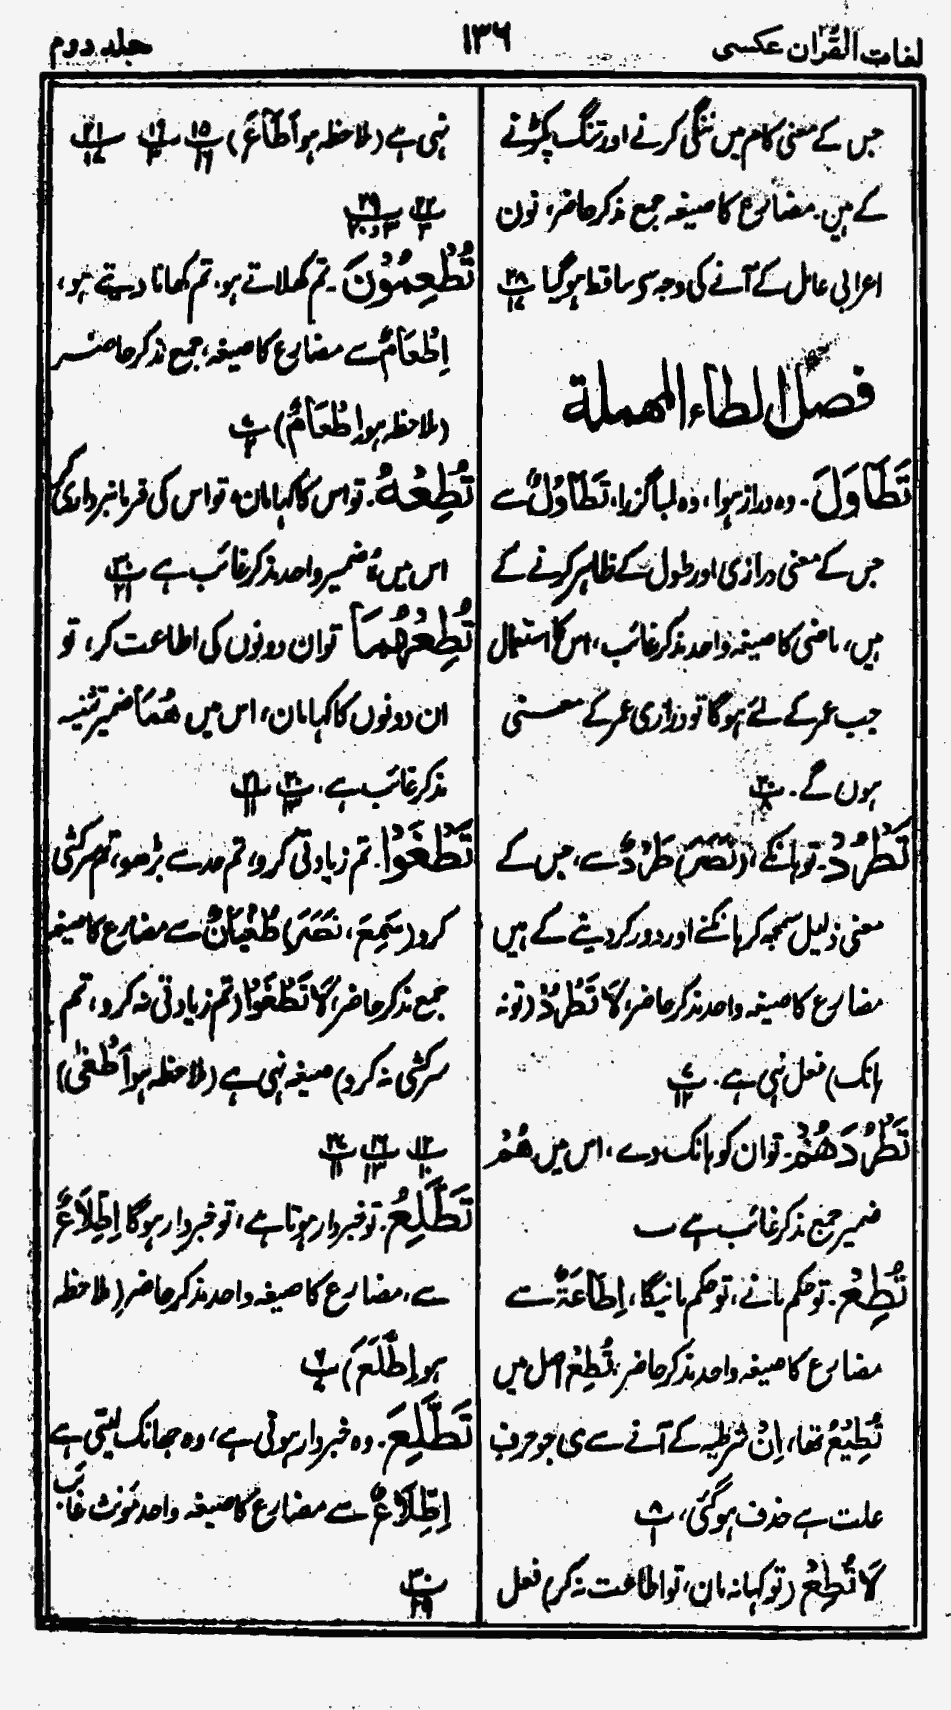 لغات القرآن عکسی
۱۳۶
جلد دوم
جس کے معنی کام میں تنگی کرنے اور تنگ پکڑنے
کے ہیں۔ مضارع کا صیغہ جمع مذکر حاضر، نون
اعرابی عامل کے آنے کی وجہ سے ساقط ہوگیا پ ۲۸/۱۷
فصل الطاء المهملة
تَطَاوَلَ۔ وہ دراز ہوا، وہ لمبا گزرا، تَطَاوُلٌ سے
جس کے معنی درازی اور طول کے ظاہر کرنے کے
ہیں، ماضی کا صیغہ واحد مذکر غائب، اس کا استعمال
جب عمر کے لئے ہوگا تو درازی عمر کے معنی
ہوں گے۔ پ ۲۰/۸
تَطْرُدْ۔ تو ہانکے، (نَصَرَ) طَرْدٌ سے، جس کے
معنی ذلیل سمجھ کر ہانکنے اور دور کر دینے کے ہیں
مضارع کا صیغہ واحد مذکر حاضر، لَا تَطْرُدْ (تو نہ
ہانک) فعل نہی ہے۔ پ ۷/۱۲
تَطْرُدَهُمْ۔ تو ان کو ہانک دے، اس میں هُمْ
ضمیر جمع مذکر غائب ہے پ
تُطِعْ۔ تو حکم مانے، تو حکم مانیگا، اِطَاعَۃٌ سے
مضارع کا صیغہ واحد مذکر حاضر، تُطِعْ اصل میں
تُطِیْعُ تھا، اِنْ شرطیہ کے آنے سے ی جو حرف
علت ہے حذف ہوگئی، پ ۸/۱
لَا تُطِعْ (تو کہا نہ مان، تو اطاعت نہ کر) فعل
نہی ہے (ملاحظہ ہو اَطَاعَ) پ ۱۵/۱۶ پ ۱۹/۳ پ ۲۱/۱۷
پ ۲۲/۳ پ ۲۹/۳ و ۲۰
تُطْعِمُوْنَ۔ تم کھلاتے ہو، تم کھانا دیتے ہو،
اِطْعَامٌ سے مضارع کا صیغہ، جمع مذکر حاضر
(ملاحظہ ہو اِطْعَامٌ) پ ۷/۲
تُطِعْهُ۔ تو اس کا کہا مان، تو اس کی فرمانبرداری کر
اس میں ہٗ ضمیر واحد مذکر غائب ہے پ ۳۰/۲۱
تُطِعْهُمَا تو ان دونوں کی اطاعت کر، تو
ان دونوں کا کہا مان، اس میں هُمَا ضمیر تثنیہ
مذکر غائب ہے، پ ۲۰/۱۳ پ ۲۱/۱۱
تَطْغَوْا۔ تم زیادتی کرو، تم حد سے بڑھو، تم سرکشی
کرو (سَمِعَ، نَصَرَ) طُغْیَانٌ سے مضارع کا صیغہ
جمع مذکر حاضر، لَا تَطْغَوْا (تم زیادتی نہ کرو، تم
سرکشی نہ کرو) صیغہ نہی ہے (ملاحظہ ہو اَطْغٰی)
پ ۱۲/۱۰ پ ۱۶/۱۳ پ ۲۷/۱۱
تَطَّلِعُ۔ تو خبردار ہوتا ہے، تو خبردار ہوگا اِطِّلَاعٌ
سے، مضارع کا صیغہ واحد مذکر حاضر (ملاحظہ
ہو اِطَّلَعَ) پ ۶/۷
تَطَّلِعُ۔ وہ خبردار ہوتی ہے، وہ جھانک لیتی ہے
اِطِّلَاعٌ سے مضارع کا صیغہ واحد مؤنث غائب
پ ۳۰/۲۹